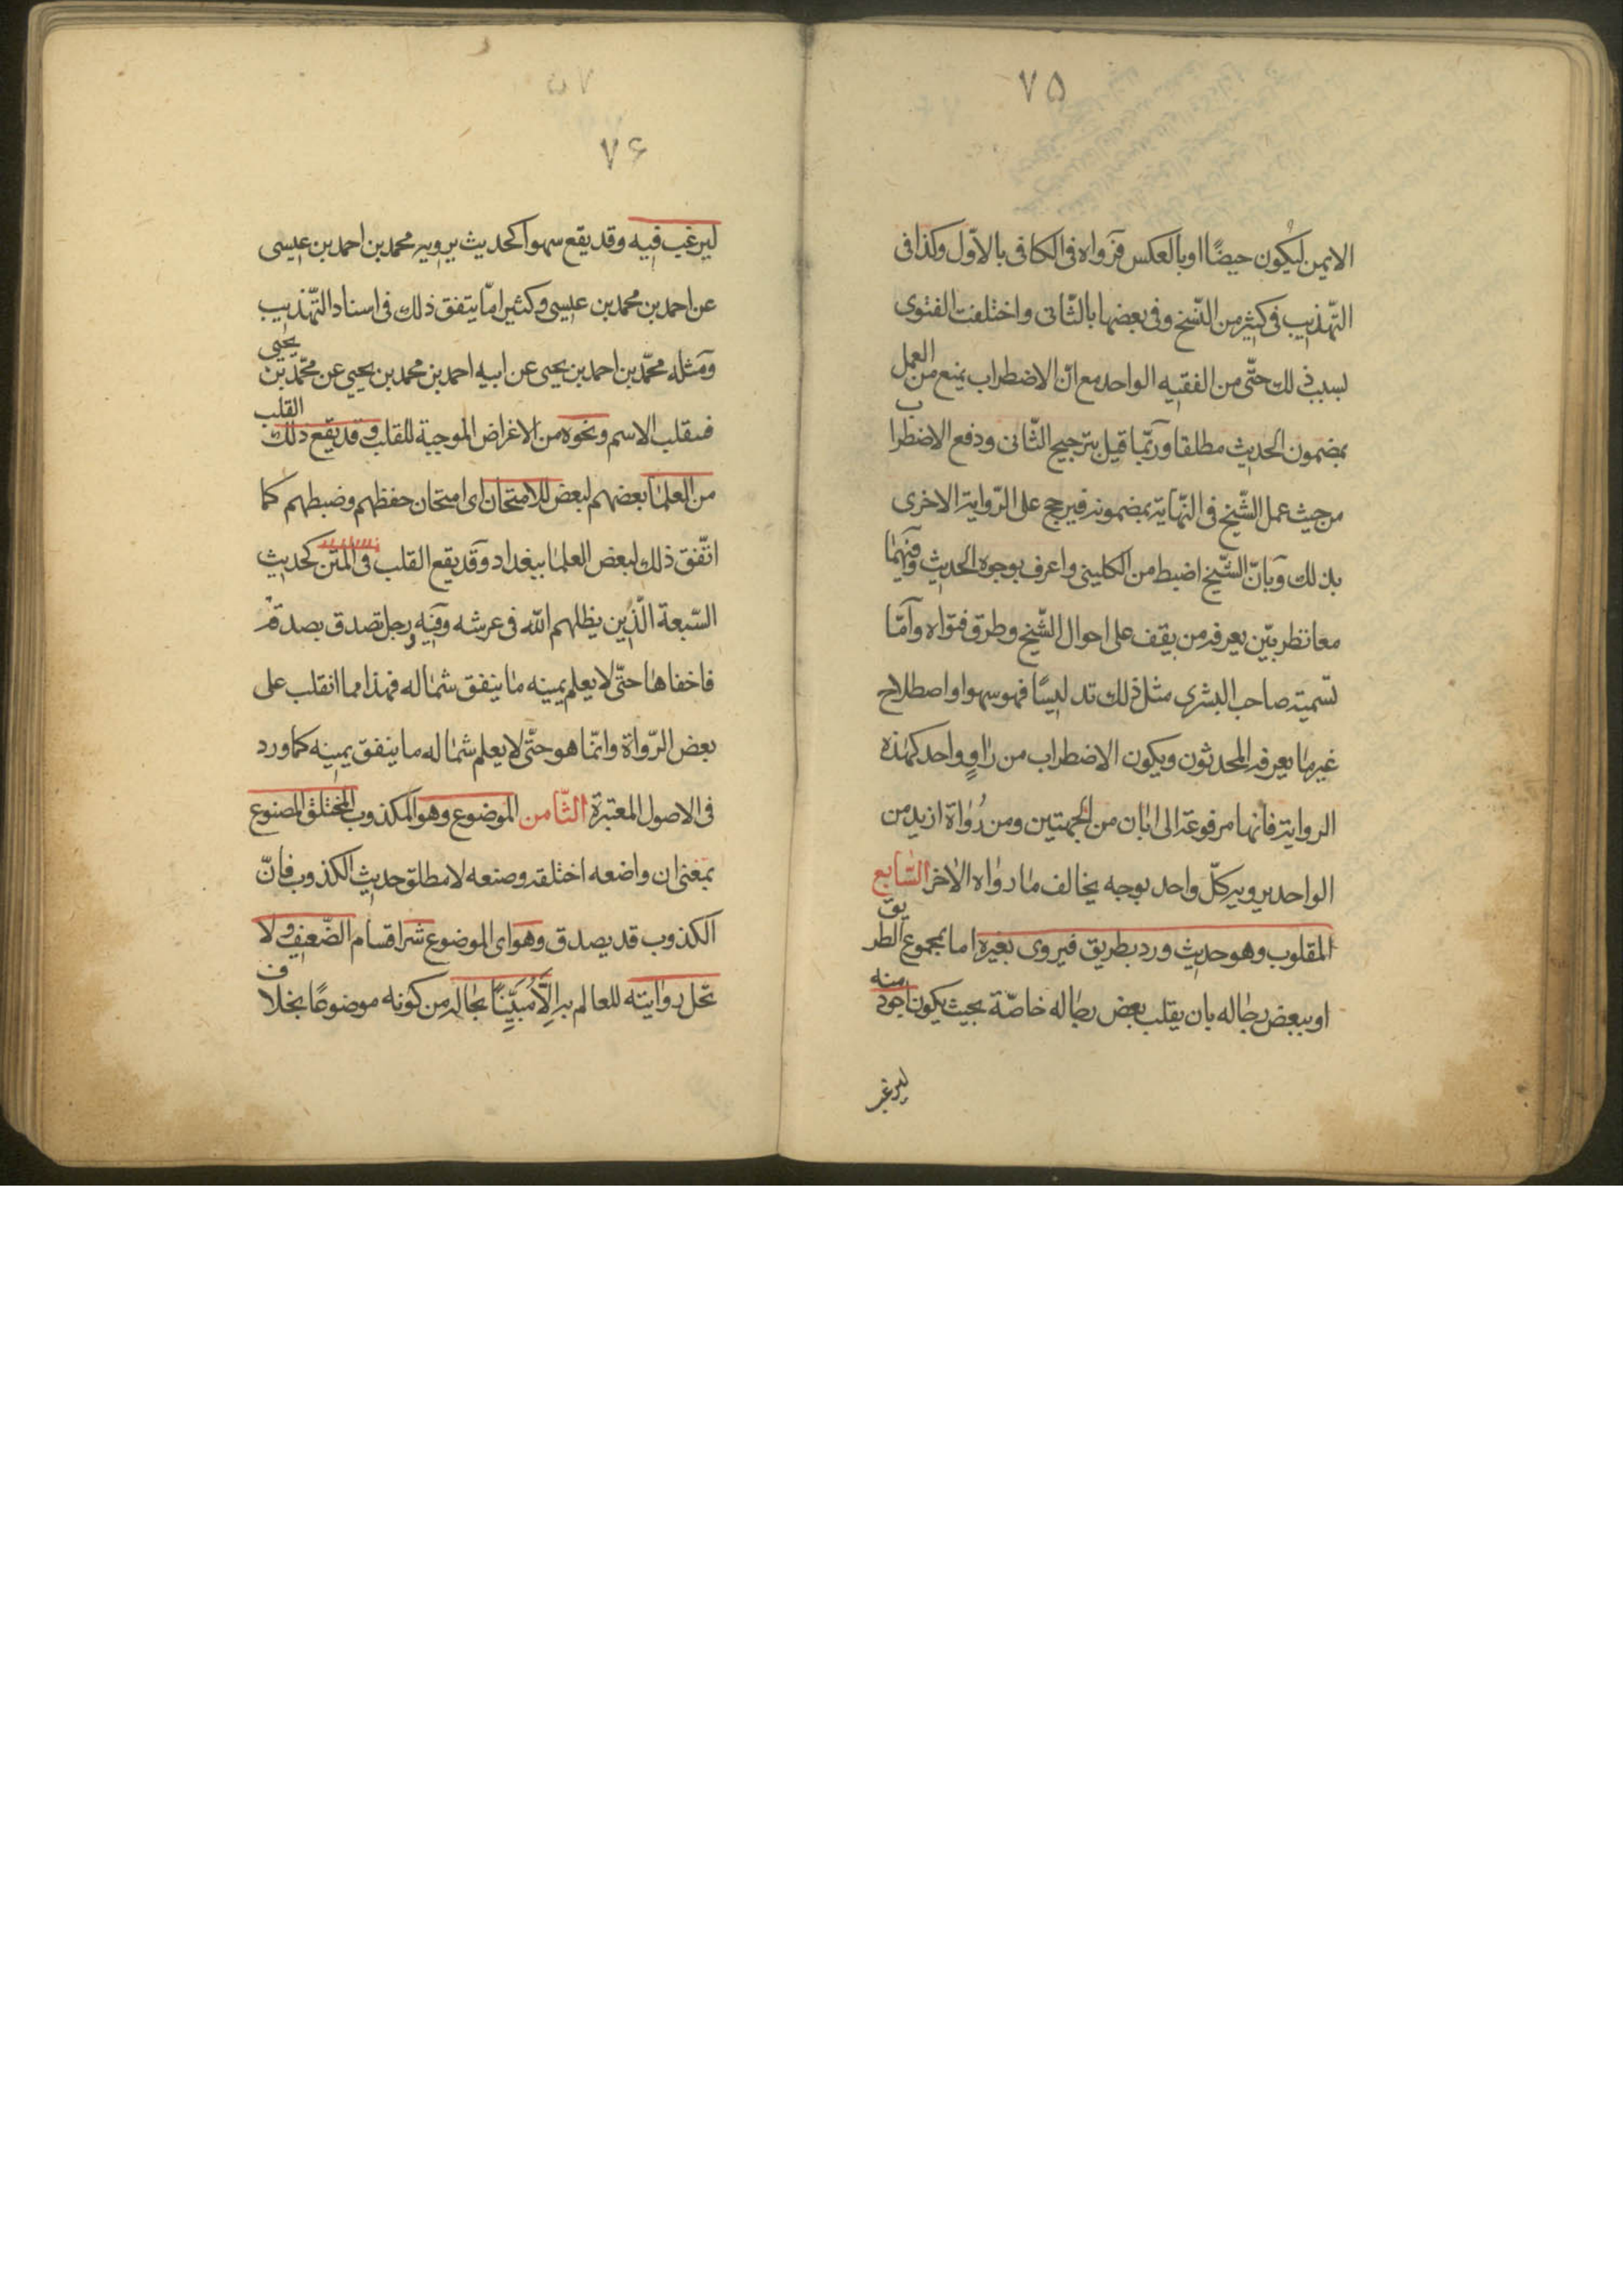 ٧۵
الايمن ليكون حيضًا او بالعكس فرواه فى الكافى بالاوّل وكذا فى
التّهذيب فى كثير من النّسخ وفى بعضها بالثّانى واختلفت الفتوى
بسبب ذلك حتّى من الفقيه الواحد مع انّ الاضطراب يمنع من العمل
بمضمون الحديث مطلقا وربّما قيل بترجيح الثّانى ودفع الاضطراب
من حيث عمل الشّيخ فى النّهاية بمضمونه فيرجح على الرّواية الاخرى
بذلك وبانّ الشّيخ اضبط من الكلينى واعرف بوجوه الحديث وفيهما
معا نظر بيّن يعرفه من يقف على احوال الشّيخ وطرق فتواه وامّا
تسميته صاحب البشرى مثل ذلك تدليسًا فهو سهو او اصطلاح
غير ما يعرفه المحدثون ويكون الاضطراب من راوٍ واحد كهذه
الرواية فانها مرفوعة الى ابان من الجهتين ومن رُواة ازيد من
الواحد يرويه كلّ واحد بوجه يخالف ما رواه الاخر السّابع
المقلوب وهو حديث ورد بطريق فيروى بغيره اما بمجموع الطريق
او ببعض رجاله بان يقلب بعض رجاله خاصّة بحيث يكون اجود منه
ليرغب
٧۶
ليرغب فيه وقد يقع سهوا كحديث يرويه محمد بن احمد بن عيسى
عن احمد بن محمد بن عيسى وكثيرا مّا يتفق ذلك فى اسناد التّهذيب
ومثله محمّد بن احمد بن يحيى عن ابيه احمد بن محمد بن يحيى عن محمّد بن يحيى
فينقلب الاسم ونحوه من الاغراض الموجبة للقلب وقد يقع ذلك القلب
من العلما بعضهم لبعض للامتحان اى امتحان حفظهم وضبطهم كما
اتّفق ذلك لبعض العلما ببغداد وقد يقع القلب فى المتن كحديث
السّبعة الّذين يظلهم الله فى عرشه وفيه ورجل تصدق بصدقة
فاخفاها حتّى لا يعلم يمينه ما ينفق شماله فهذا مما انقلب على
بعض الرّواة وانّما هو حتّى لا يعلم شماله ما ينفق يمينه كما ورد
فى الاصول المعتبرة الثّامن الموضوع وهو المكذوب المختلق المصنوع
بمعنى ان واضعه اختلقه وصنعه لا مطلق حديث الكذوب فانّ
الكذوب قد يصدق وهو اى الموضوع شر اقسام الضّعيف ولا
تحل روايته للعالم به الّا مُبَيِّنًا بحاله من كونه موضوعًا بخلاف